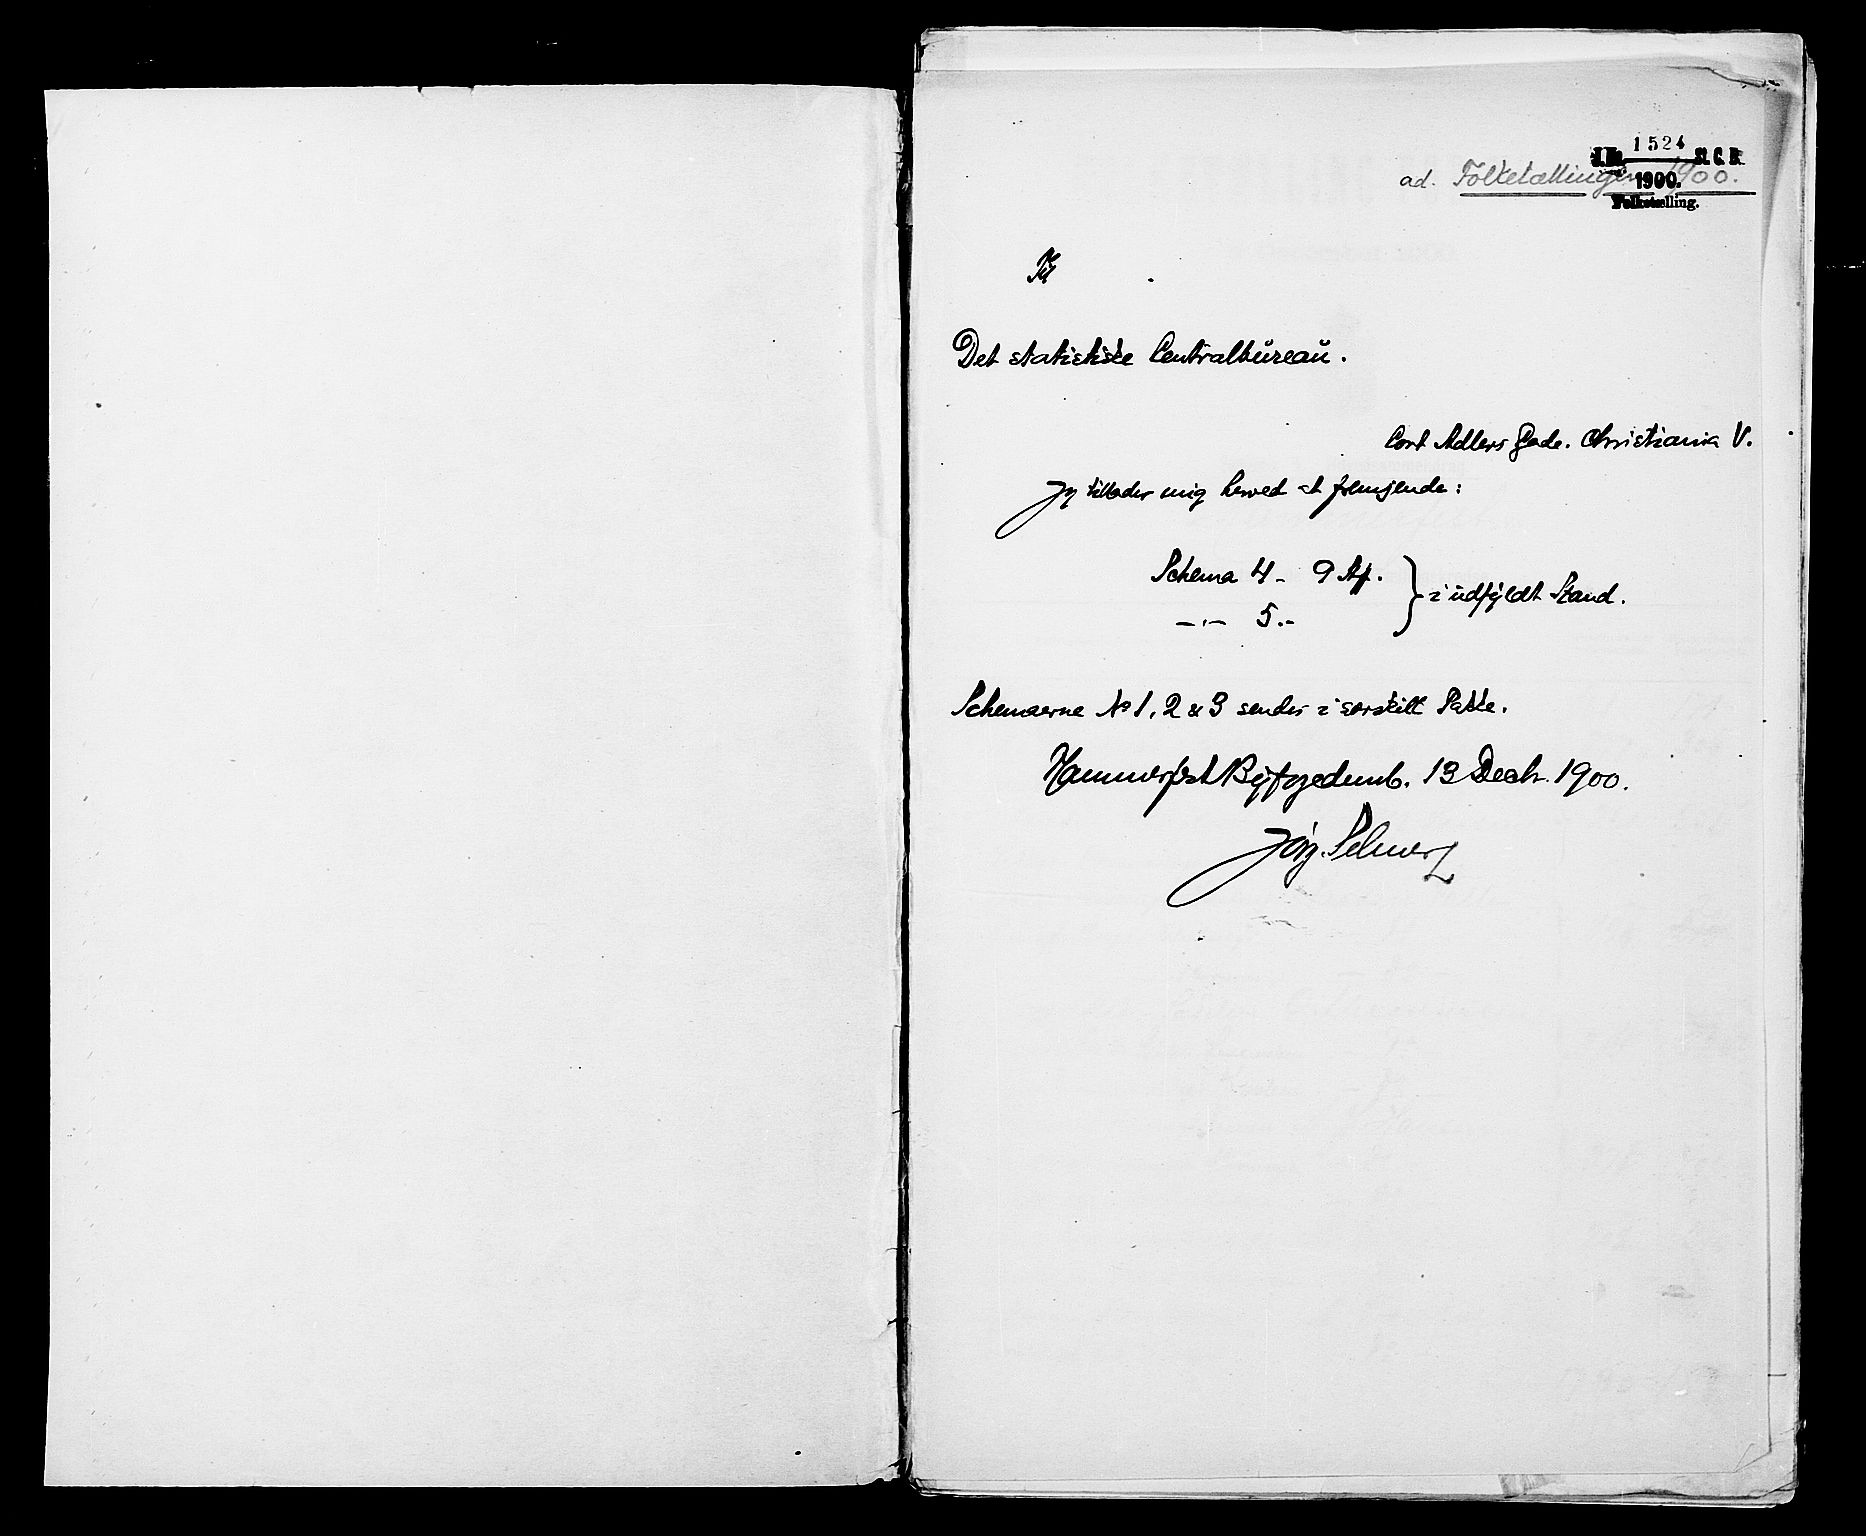 J.No. 1524 St. C. B.
1900.
Folketælling.
ad. Folketællingen 1900.
Til
Det statistiske Centralbureau.
Cort Adlers Gade. Christiania V.
Jeg tillader mig herved at fremsende:
Schema 4 - 9 St.
—"— 5.-
} i udfyldt Stand.
Schemaerne No 1, 2 & 3 sendes i særskilt Pakke.
Hammerfest Byfogedemb. 13 Decbr. 1900.
Jørg. Selmer